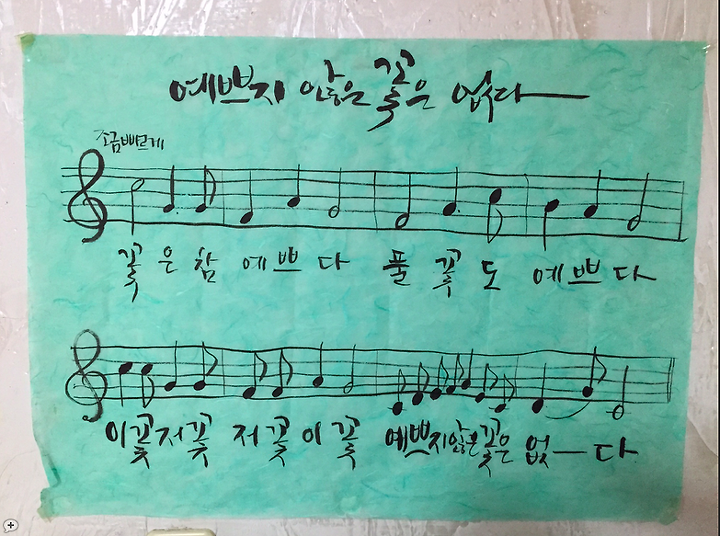 예쁘지 않은 꽃은 없다
조금빠르게
꽃은참 예쁘다 풀꽃도 예쁘다
이꽃저꽃 저꽃이꽃 예쁘지않은꽃은 없ㅡ다